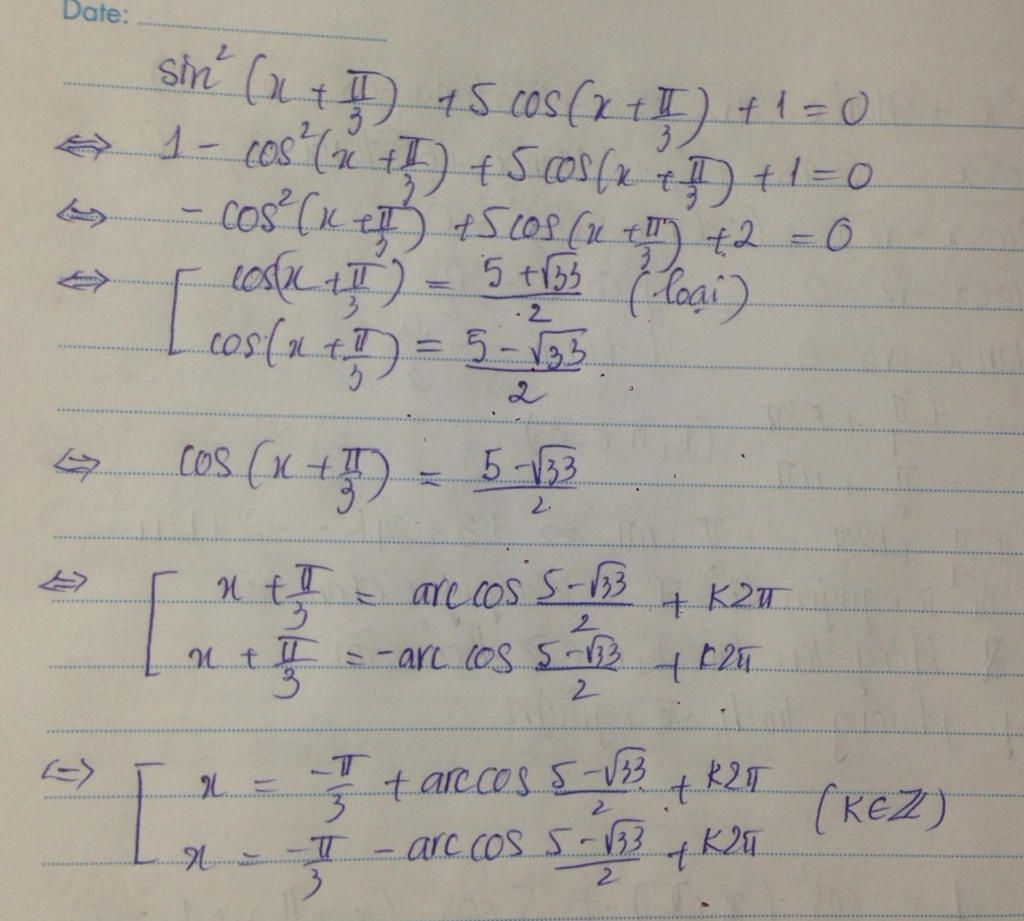 Date:
sin²(x + π/3) + 5 cos(x + π/3) + 1 = 0
⇔ 1 - cos²(x + π/3) + 5 cos(x + π/3) + 1 = 0
⇔ - cos²(x + π/3) + 5 cos(x + π/3) + 2 = 0
⇔ [ cos(x + π/3) = (5 + √33)/2 (loại)
cos(x + π/3) = (5 - √33)/2
⇔ cos(x + π/3) = (5 - √33)/2
⇔ [ x + π/3 = arccos (5 - √33)/2 + K2π
x + π/3 = - arccos (5 - √33)/2 + K2π
⇔ [ x = -π/3 + arccos (5 - √33)/2 + K2π
x = -π/3 - arccos (5 - √33)/2 + K2π (K∈ℤ)